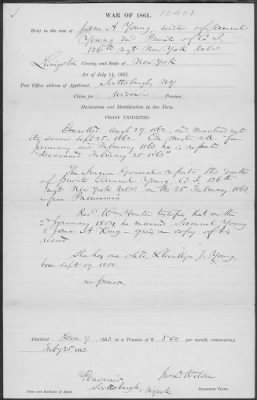 WAR OF 1861.
Brief in the case of Jane A. Young widow of Samuel
Young dec'd Private of Co. I
136th Regt New York Vols
Livingston County, and State of New York
Act of July 14, 1862.
Post Office address of Applicant, Scottsburgh, NY
Claim for Widow Pension.
Declaration and Identification in Due Form.
PROOF EXHIBITED.
Enrolled Augt 29 1862, and mustered into
the service Sept 25 1862. On muster roll for
January and February 1863 he is reported
"Deceased February 25 1863"
The Surgeon General reports the death
of private Samuel Young Co. I 136th
Regt New York Vols. on the 25 February 1863
from Pneumonia
Revd Wm Hunter testifies that on the
2d January 1854 he married Samuel Young
to Jane A. King
record
She has one child, Llewellyn J. Young
born Sept 19, 1855
Admitted Dec 9 1863, to a Pension of $ 8.00 per month, commencing
Feby 25 1863.
Scottsburgh,